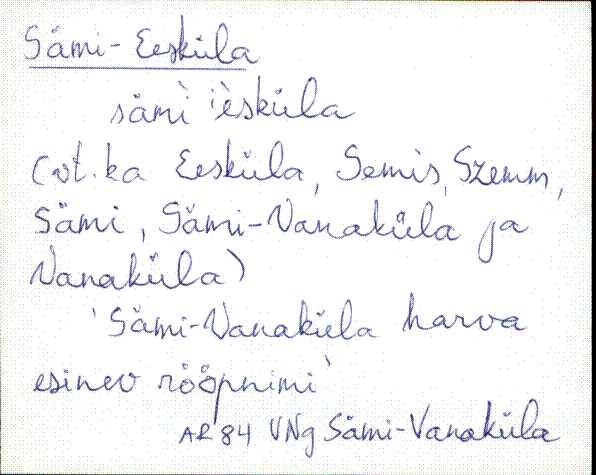 Sämi-Eesküla
sämì ìesküla
(vt. ka Eesküla, Semis, Szemm,
Sämi, Sämi-Vanaküla ja
Vanaküla)
'Sämi-Vanaküla harva
esinev rööpnimi'
AR 84 VNg Sämi-Vanaküla